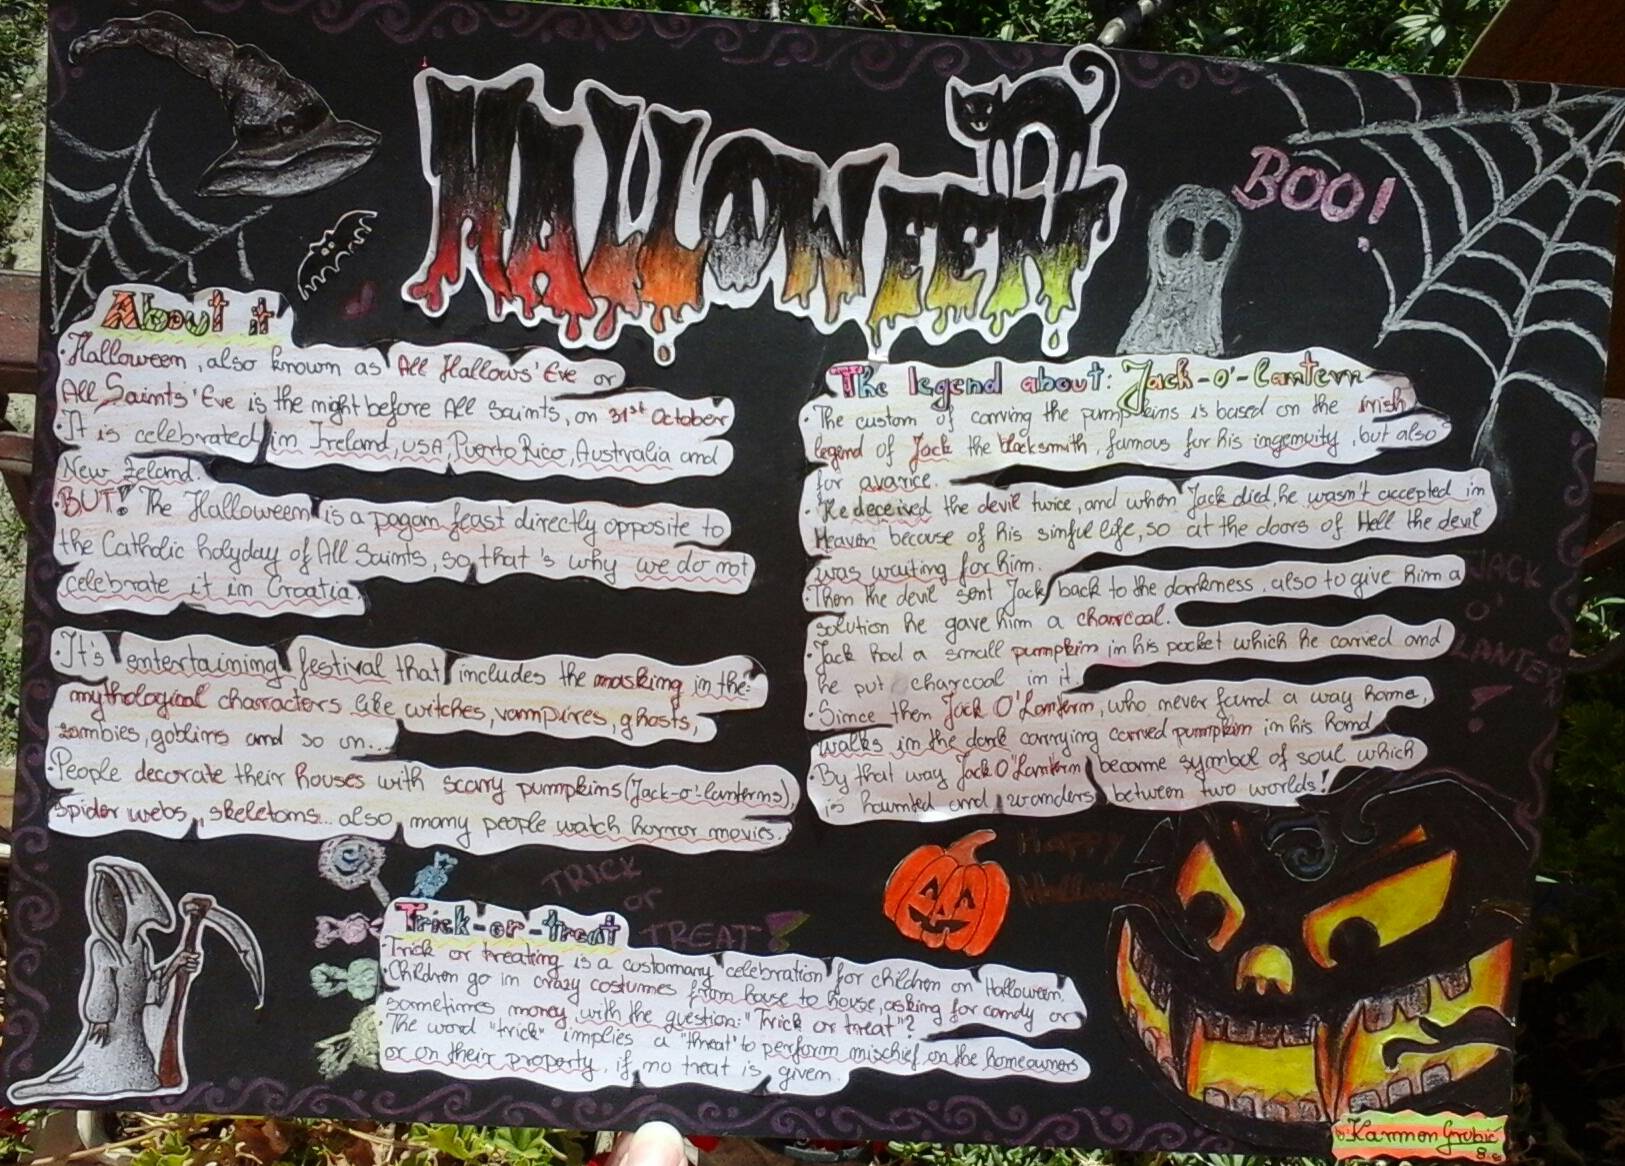 HALLOWEEN
BOO!
About it
·Halloween, also known as All Hallows' Eve or
All Saints' Eve is the night before All Saints, on 31st October
·It is celebrated in Ireland, USA, Puerto Rico, Australia and
New Zeland.
·BUT! The Halloween is a pagan feast directly opposite to
the Catholic holyday of All Saints, so that's why we do not
celebrate it in Croatia.
·It's entertaining festival that includes the masking in the
mythological characters like witches, vampires, ghosts,
zombies, goblins and so on...
·People decorate their houses with scary pumpkins (Jack-o'-lanterns),
spider webs, skeletons... also many people watch horror movies.
The legend about: Jack-o'-lantern
·The custom of carving the pumpkins is based on the irish
legend of Jack the blacksmith, famous for his ingenuity, but also
for avarice.
·He deceived the devil twice, and when Jack died, he wasn't accepted in
Heaven because of his sinful life, so at the doors of Hell the devil
was waiting for him.
·Then the devil sent Jack back to the darkness, also to give him a
solution he gave him a charcoal.
·Jack had a small pumpkin in his pocket which he carved and
he put charcoal in it.
·Since then Jack O'Lantern, who never found a way home,
walks in the dark carrying carved pumpkin in his hand
·By that way Jack O'Lantern became symbol of soul which
is haunted and wanders between two worlds!
JACK
O'
LANTERN
!
TRICK
or
TREAT!
Happy
Trick-or-treat
·Trick or treating is a customary celebration for children on Halloween.
·Children go in crazy costumes from house to house, asking for candy or
sometimes money, with the question: "Trick or treat"?
·The word "trick" implies a "threat" to perform mischief on the homeowners
or on their property, if no treat is given.
Karmen Grubić